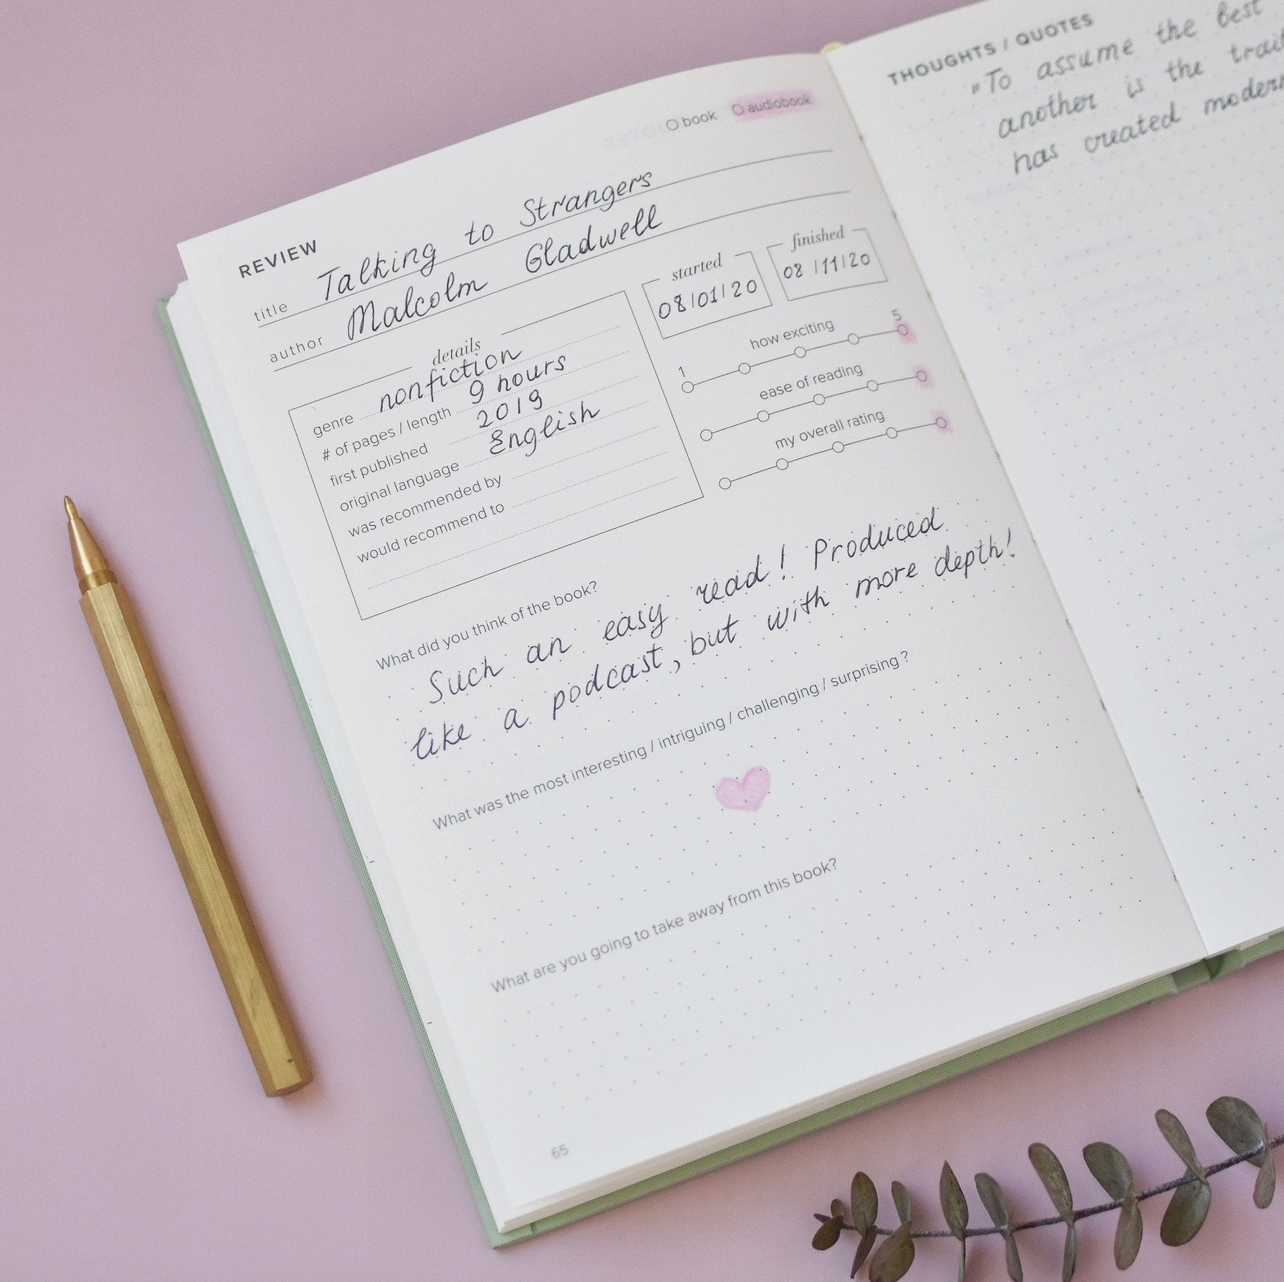 book audiobook
REVIEW
title Talking to Strangers
author Malcolm Gladwell
details
genre nonfiction
# of pages / length 9 hours
first published 2019
original language English
was recommended by
would recommend to
started
08/01/20
finished
08/11/20
how exciting
1 5
ease of reading
my overall rating
What did you think of the book?
Such an easy read! Produced
like a podcast, but with more depth!
What was the most interesting / intriguing / challenging / surprising ?
What are you going to take away from this book?
65
THOUGHTS / QUOTES
"To assume the best
another is the trait
has created modern